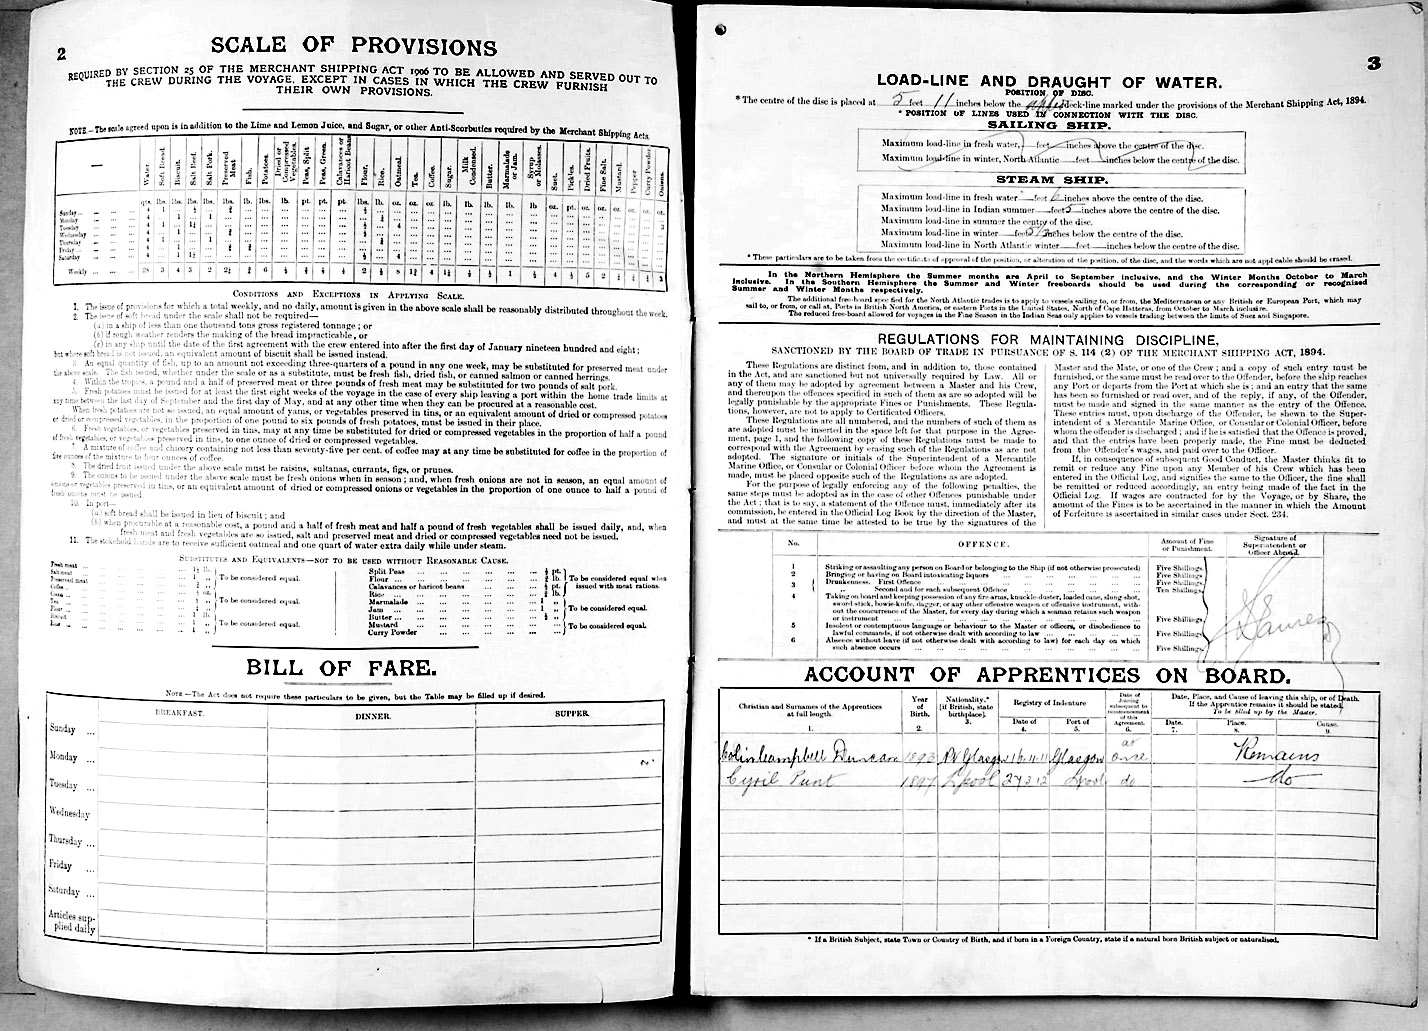 2
SCALE OF PROVISIONS
REQUIRED BY SECTION 25 OF THE MERCHANT SHIPPING ACT 1906 TO BE ALLOWED AND SERVED OUT TO
THE CREW DURING THE VOYAGE, EXCEPT IN CASES IN WHICH THE CREW FURNISH
THEIR OWN PROVISIONS.
NOTE.—The scale agreed upon is in addition to the Lime and Lemon Juice, and Sugar, or other Anti-Scorbutics required by the Merchant Shipping Acts.
— Water. Soft Bread. Biscuit. Salt Beef. Salt Pork. Preserved Meat Fish. Potatoes. Dried or Compressed Vegetables. Peas, Split Peas, Green. Calavances or Haricot Beans Flour. Rice. Oatmeal. Tea. Coffee. Sugar. Milk Condensed. Butter. Marmalade or Jam. Syrup or Molasses. Suet. Pickles. Dried Fruits. Fine Salt. Mustard. Pepper Curry Powder Onions.
qts. lbs. lbs. lbs. lbs. lbs. lb. lbs. lb. pt. pt. pt. lbs. lb. oz. oz. oz. lb. lb. lb. lb. lb. oz. pt. oz. oz. oz. oz. oz. oz.
Sunday
Monday
Tuesday
Wednesday
Thursday
Friday
Saturday
Weekly
CONDITIONS AND EXCEPTIONS IN APPLYING SCALE.
1. The issue of provisions for which a total weekly, and no daily, amount is given in the above scale shall be reasonably distributed throughout the week.
2. The issue of soft bread under the scale shall not be required—
(a) in a ship of less than one thousand tons gross registered tonnage; or
(b) if rough weather renders the making of the bread impracticable, or
(c) in any ship until the date of the first agreement with the crew entered into after the first day of January nineteen hundred and eight;
but where soft bread is not issued, an equivalent amount of biscuit shall be issued instead.
3. An equal quantity of fish, up to an amount not exceeding three-quarters of a pound in any one week, may be substituted for preserved meat under
the above scale. The fish issued, whether under the scale or as a substitute, must be fresh fish, dried fish, or canned salmon or canned herrings.
4. Within the tropics, a pound and a half of preserved meat or three pounds of fresh meat may be substituted for two pounds of salt pork.
5. Fresh potatoes must be issued for at least the first eight weeks of the voyage in the case of every ship leaving a port within the home trade limits at
any time between the last day of September and the first day of May, and at any other time when they can be procured at a reasonable cost.
When fresh potatoes are not so issued, an equal amount of yams, or vegetables preserved in tins, or an equivalent amount of dried or compressed potatoes
or dried or compressed vegetables, in the proportion of one pound to six pounds of fresh potatoes, must be issued in their place.
6. Fresh vegetables, or vegetables preserved in tins, may at any time be substituted for dried or compressed vegetables in the proportion of half a pound
of fresh vegetables, or vegetables preserved in tins, to one ounce of dried or compressed vegetables.
A mixture of coffee and chicory containing not less than seventy-five per cent. of coffee may at any time be substituted for coffee in the proportion of
five ounces of the mixture to four ounces of coffee.
8. The dried fruit issued under the above scale must be raisins, sultanas, currants, figs, or prunes.
9. The onions to be issued under the above scale must be fresh onions when in season; and, when fresh onions are not in season, an equal amount of
onions or vegetables preserved in tins, or an equivalent amount of dried or compressed onions or vegetables in the proportion of one ounce to half a pound of
fresh onions must be issued.
10. In port—
(a) soft bread shall be issued in lieu of biscuit; and
(b) when procurable at a reasonable cost, a pound and a half of fresh meat and half a pound of fresh vegetables shall be issued daily, and, when
fresh meat and fresh vegetables are so issued, salt and preserved meat and dried or compressed vegetables need not be issued.
11. The stokehold hands are to receive sufficient oatmeal and one quart of water extra daily while under steam.
SUBSTITUTES AND EQUIVALENTS—NOT TO BE USED WITHOUT REASONABLE CAUSE.
Fresh meat
Salt meat
Preserved meat
To be considered equal.
Coffee
Cocoa
Tea
To be considered equal.
Flour
Biscuit
Rice
To be considered equal.
Split Peas
Flour
Calavances or haricot beans
Rice
To be considered equal when issued with meat rations.
Marmalade
Jam
Butter
To be considered equal.
Mustard
Curry Powder
To be considered equal.
BILL OF FARE.
NOTE—The Act does not require these particulars to be given, but the Table may be filled up if desired.
BREAKFAST. DINNER. SUPPER.
Sunday ...
Monday ...
Tuesday ...
Wednesday
Thursday ...
Friday ...
Saturday ...
Articles supplied daily
3
LOAD-LINE AND DRAUGHT OF WATER.
POSITION OF DISC.
* The centre of the disc is placed at 5 feet 11 inches below the upper deck-line marked under the provisions of the Merchant Shipping Act, 1894.
* POSITION OF LINES USED IN CONNECTION WITH THE DISC.
SAILING SHIP.
Maximum load-line in fresh water, feet inches above the centre of the disc.
Maximum load-line in winter, North Atlantic feet inches below the centre of the disc.
STEAM SHIP.
Maximum load-line in fresh water — feet 6 inches above the centre of the disc.
Maximum load-line in Indian summer — feet 5 inches above the centre of the disc.
Maximum load-line in summer the centre of the disc.
Maximum load-line in winter — feet 5½ inches below the centre of the disc.
Maximum load-line in North Atlantic winter — feet — inches below the centre of the disc.
* These particulars are to be taken from the certificate of approval of the position, or alteration of the position, of the disc, and the words which are not applicable should be erased.
In the Northern Hemisphere the Summer months are April to September inclusive, and the Winter Months October to March
inclusive. In the Southern Hemisphere the Summer and Winter freeboards should be used during the corresponding or recognised
Summer and Winter Months respectively.
The additional free-board specified for the North Atlantic trades is to apply to vessels sailing to, or from, the Mediterranean or any British or European Port, which may
sail to, or from, or call at, Ports in British North America, or eastern Ports in the United States, North of Cape Hatteras, from October to March inclusive.
The reduced free-board allowed for voyages in the Fine Season in the Indian Seas only applies to vessels trading between the limits of Suez and Singapore.
REGULATIONS FOR MAINTAINING DISCIPLINE,
SANCTIONED BY THE BOARD OF TRADE IN PURSUANCE OF S. 114 (2) OF THE MERCHANT SHIPPING ACT, 1894.
These Regulations are distinct from, and in addition to, those contained
in the Act, and are sanctioned but not universally required by Law. All or
any of them may be adopted by agreement between a Master and his Crew,
and thereupon the offences specified in such of them as are so adopted will be
legally punishable by the appropriate Fines or Punishments. These Regula-
tions, however, are not to apply to Certificated Officers.
These Regulations are all numbered, and the numbers of such of them as
are adopted must be inserted in the space left for that purpose in the Agree-
ment, page 1, and the following copy of these Regulations must be made to
correspond with the Agreement by erasing such of the Regulations as are not
adopted. The signature or initials of the Superintendent of a Mercantile
Marine Office, or Consular or Colonial Officer before whom the Agreement is
made, must be placed opposite such of the Regulations as are adopted.
For the purpose of legally enforcing any of the following penalties, the
same steps must be adopted as in the case of other Offences punishable under
the Act; that is to say, a statement of the Offence must, immediately after its
commission, be entered in the Official Log Book by the direction of the Master,
and must at the same time be attested to be true by the signatures of the
Master and the Mate, or one of the Crew; and a copy of such entry must be
furnished, or the same must be read over to the Offender, before the ship reaches
any Port or departs from the Port at which she is; and an entry that the same
has been so furnished or read over, and of the reply, if any, of the Offender,
must be made and signed in the same manner as the entry of the Offence.
These entries must, upon discharge of the Offender, be shown to the Super-
intendent of a Mercantile Marine Office, or Consular or Colonial Officer, before
whom the offender is discharged; and if he is satisfied that the Offence is proved,
and that the entries have been properly made, the Fine must be deducted
from the Offender's wages, and paid over to the Officer.
If, in consequence of subsequent Good Conduct, the Master thinks fit to
remit or reduce any Fine upon any Member of his Crew which has been
entered in the Official Log, and signifies the same to the Officer, the fine shall
be remitted or reduced accordingly, an entry being made of the fact in the
Official Log. If wages are contracted for by the Voyage, or by Share, the
amount of the Fines is to be ascertained in the manner in which the Amount
of Forfeiture is ascertained in similar cases under Sect. 234.
No. OFFENCE. Amount of Fine or Punishment. Signature of Superintendent or Officer Abroad.
1 Striking or assaulting any person on Board or belonging to the Ship (if not otherwise prosecuted) Five Shillings.
2 Bringing or having on Board intoxicating liquors Five Shillings.
3 Drunkenness. First Offence Five Shillings.
„ Second and for each subsequent Offence Ten Shillings.
4 Taking on board and keeping possession of any fire-arms, knuckle-duster, loaded cane, slung-shot,
sword-stick, bowie-knife, dagger, or any other offensive weapon or offensive instrument, with-
out the concurrence of the Master, for every day during which a seaman retains such weapon
or instrument Five Shillings.
5 Insolent or contemptuous language or behaviour to the Master or officers, or disobedience to
lawful commands, if not otherwise dealt with according to law Five Shillings.
6 Absence without leave (if not otherwise dealt with according to law) for each day on which
such absence occurs Five Shillings.
ACCOUNT OF APPRENTICES ON BOARD.
Christian and Surnames of the Apprentices at full length. Year of Birth. Nationality.* (if British, state birthplace). Registry of Indenture Date of Joining subsequent to commencement of this Agreement. Date, Place, and Cause of leaving this ship, or of Death. If the Apprentice remains it should be stated. To be filled up by the Master.
Date of Port of Date. Place. Cause.
1. 2. 3. 4. 5. 6. 7. 8. 9.
Colin Campbell Duncan 1893 Pt Glasgow 16.11.11 Glasgow at once Remains
Cyril Punt 1897 L'pool 27 3 12 L'pool do do
* If a British Subject, state Town or Country of Birth, and if born in a Foreign Country, state if a natural born British subject or naturalised.